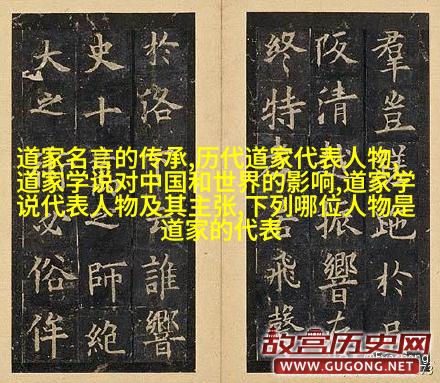 羣豈地於
阪清振響在
終特飛聲
於洛誰響
史十之師絶
大之俗侔
道家名言的传承,历代道家代表人物,
道家学说对中国和世界的影响,道家学
说代表人物及其主张,下列哪位人物是
道家的代表
故宫历史网
WWW.GUGONG.NET
73